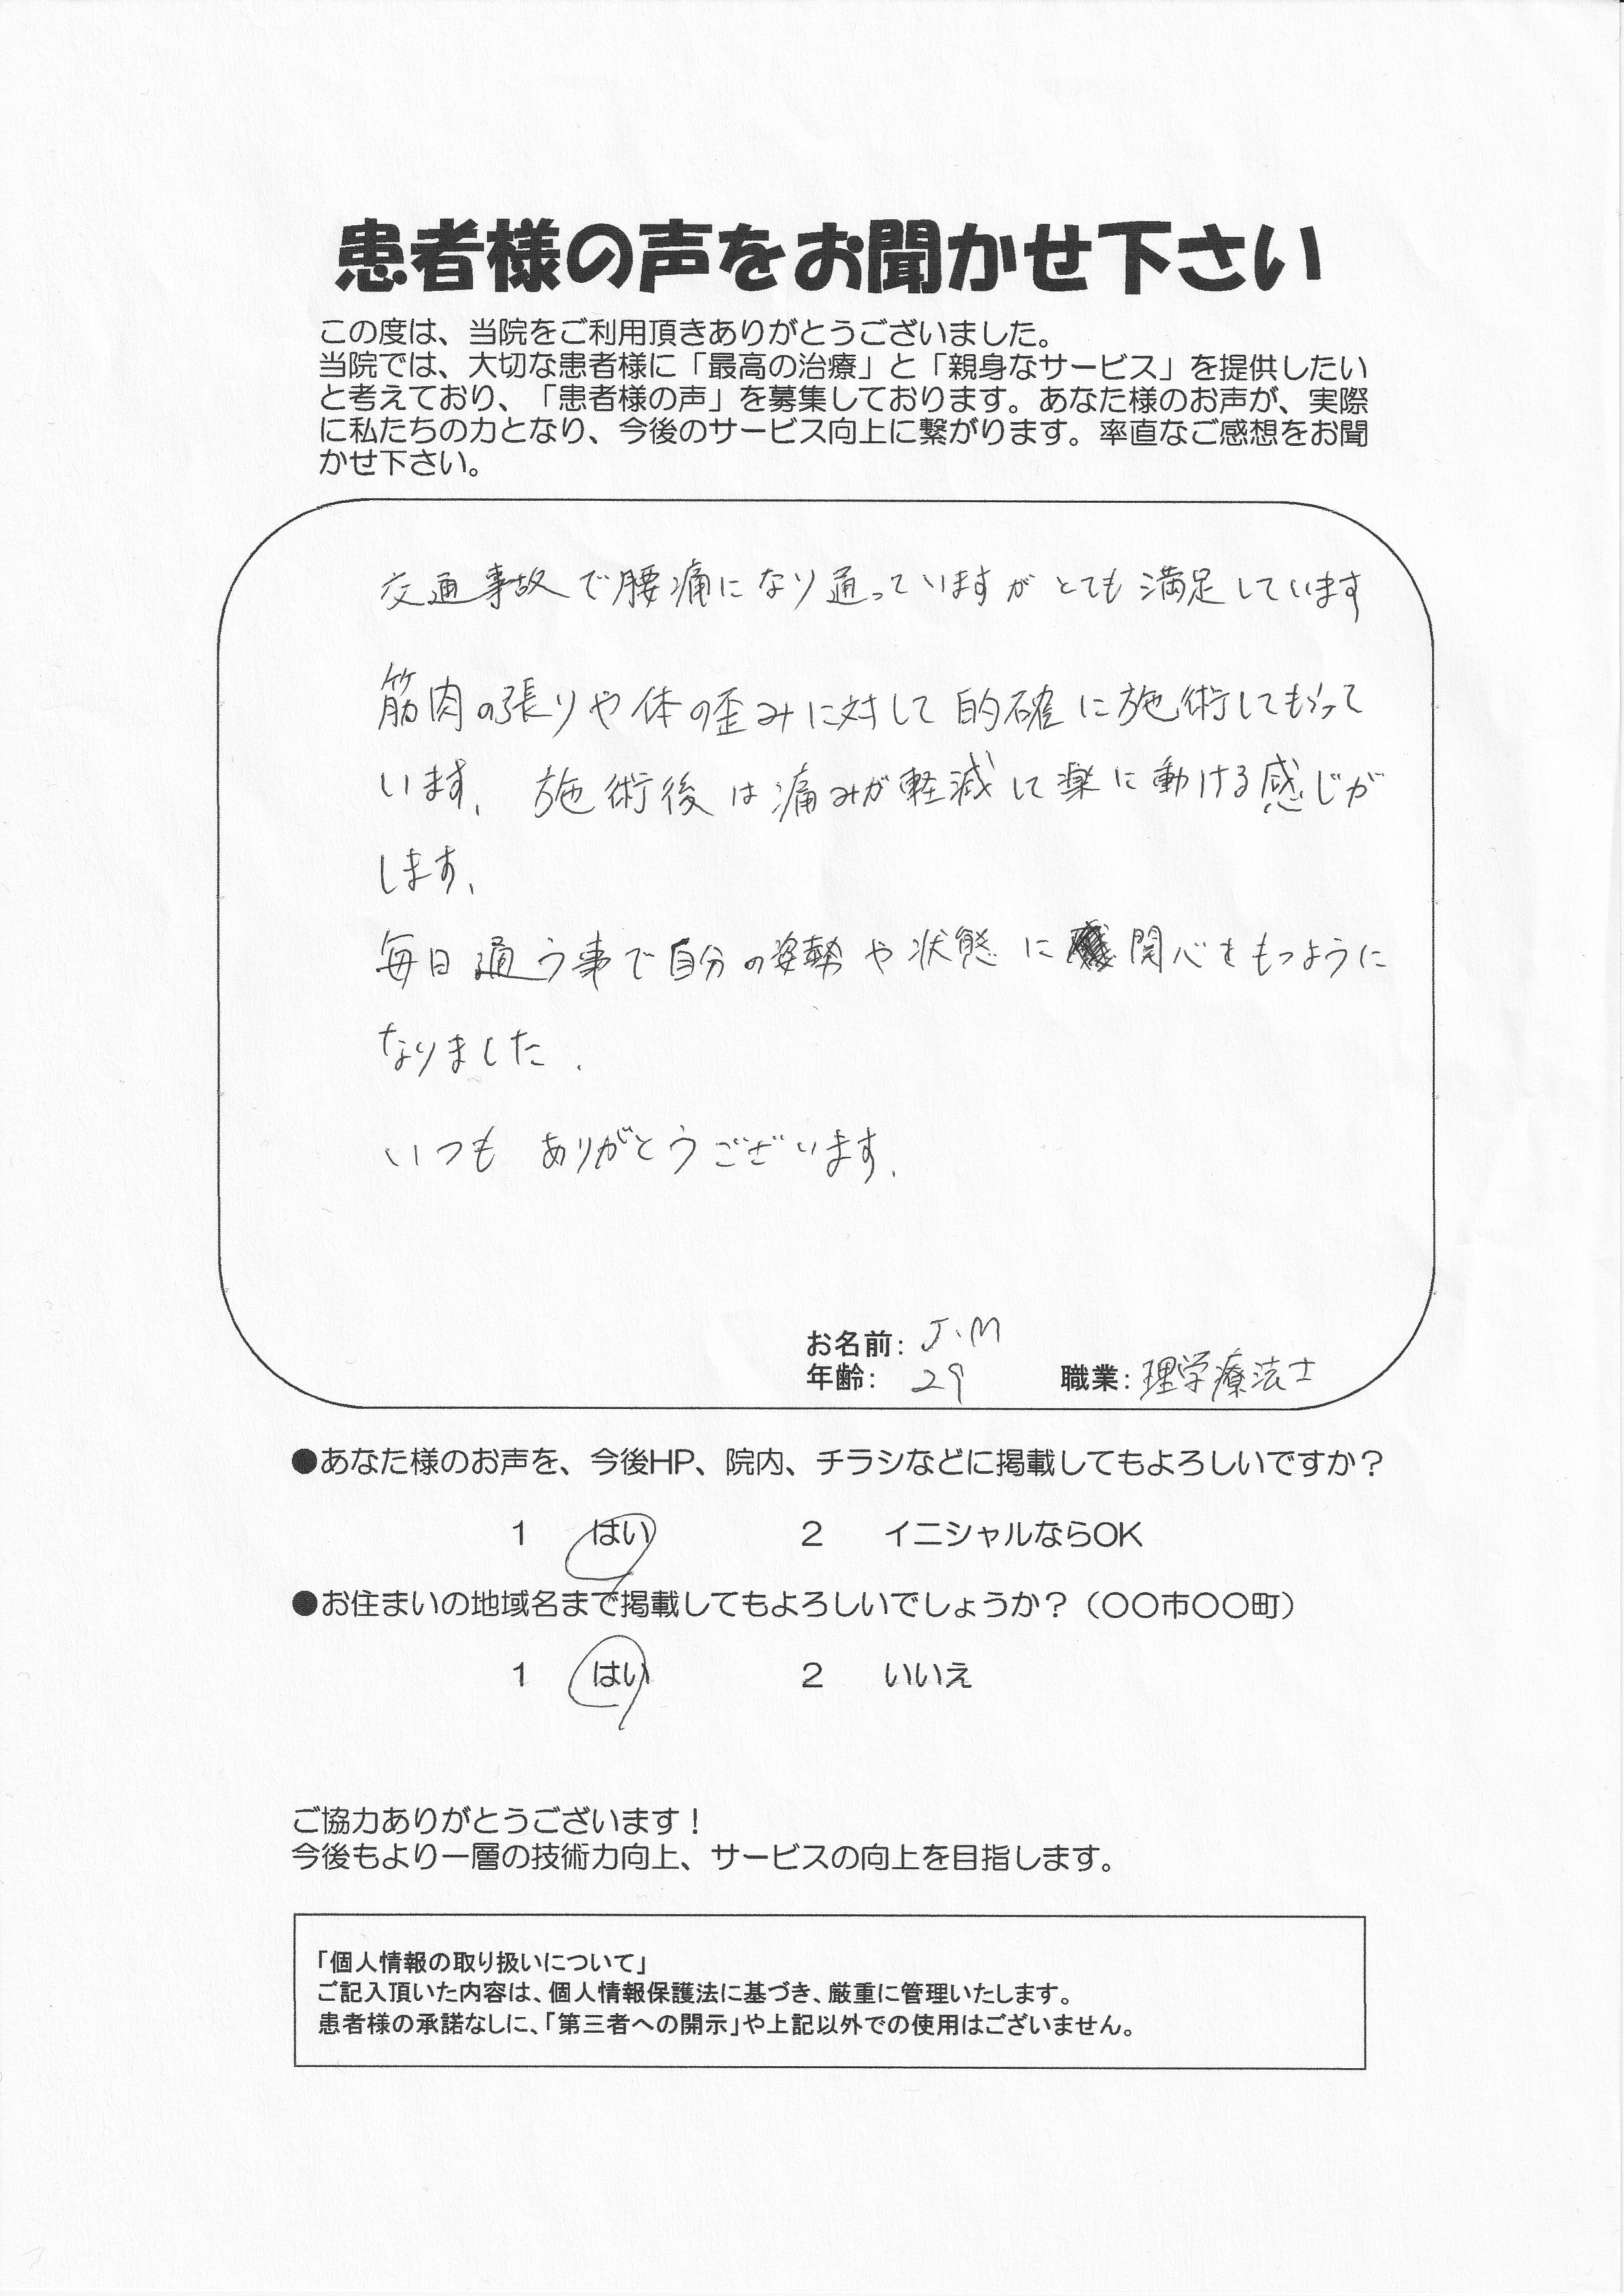 患者様の声をお聞かせ下さい
この度は、当院をご利用頂きありがとうございました。
当院では、大切な患者様に「最高の治療」と「親身なサービス」を提供したい
と考えており、「患者様の声」を募集しております。あなた様のお声が、実際
に私たちの力となり、今後のサービス向上に繋がります。率直なご感想をお聞
かせ下さい。
交通事故で腰痛になり通っていますがとても満足しています
筋肉の張りや体の歪みに対して的確に施術してもらって
います、施術後は痛みが軽減して楽に動ける感じが
します、
毎日通う事で自分の姿勢や状態に関心をもつように
なりました.
いつも ありがとうございます.
お名前: J.M
年齢: 29 職業: 理学療法士
●あなた様のお声を、今後HP、院内、チラシなどに掲載してもよろしいですか？
1 はい 2 イニシャルならOK
●お住まいの地域名まで掲載してもよろしいでしょうか？（〇〇市〇〇町）
1 はい 2 いいえ
ご協力ありがとうございます！
今後もより一層の技術力向上、サービスの向上を目指します。
「個人情報の取り扱いについて」
ご記入頂いた内容は、個人情報保護法に基づき、厳重に管理いたします。
患者様の承諾なしに、「第三者への開示」や上記以外での使用はございません。